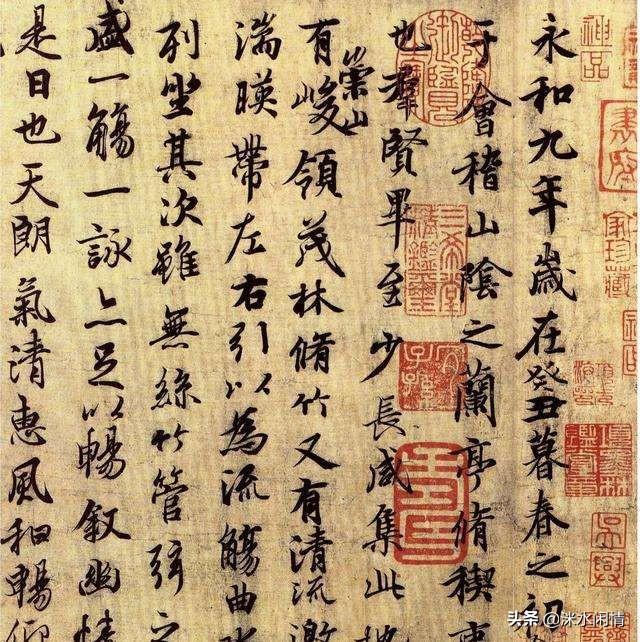 神品
家珍藏
永和九年歲在癸丑暮春之初
于會稽山陰之蘭亭脩稧事
也羣賢畢至少長咸集此地
有崇山峻領茂林脩竹又有清流激
湍暎帶左右引以為流觴曲水
列坐其次雖無絲竹管弦之
盛一觴一詠亦足以暢敘幽情
是日也天朗氣清惠風和暢仰
三希堂精鑑璽
宜子孫
头条 @洣水闲情